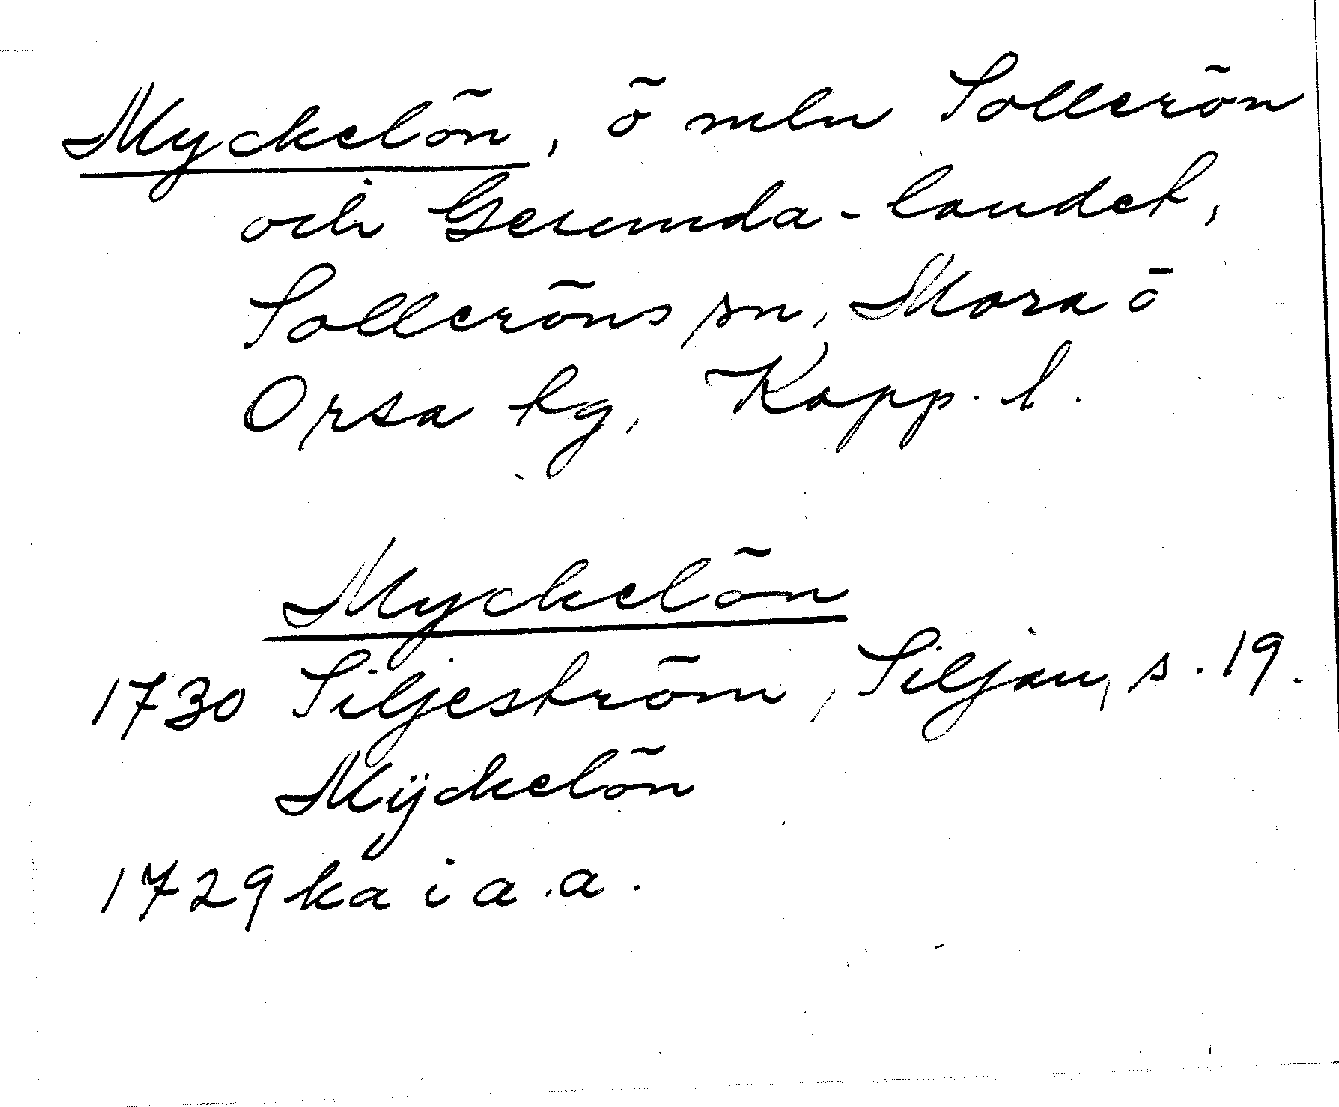 Myckelön, ö mln Sollerön
och Gesunda-landet,
Solleröns sn, Mora ö
Orsa tg, Kopp. l.
Myckelön
1730 Siljeström, Siljan, s. 19.
Mÿckelön
1729 ka i a.a.